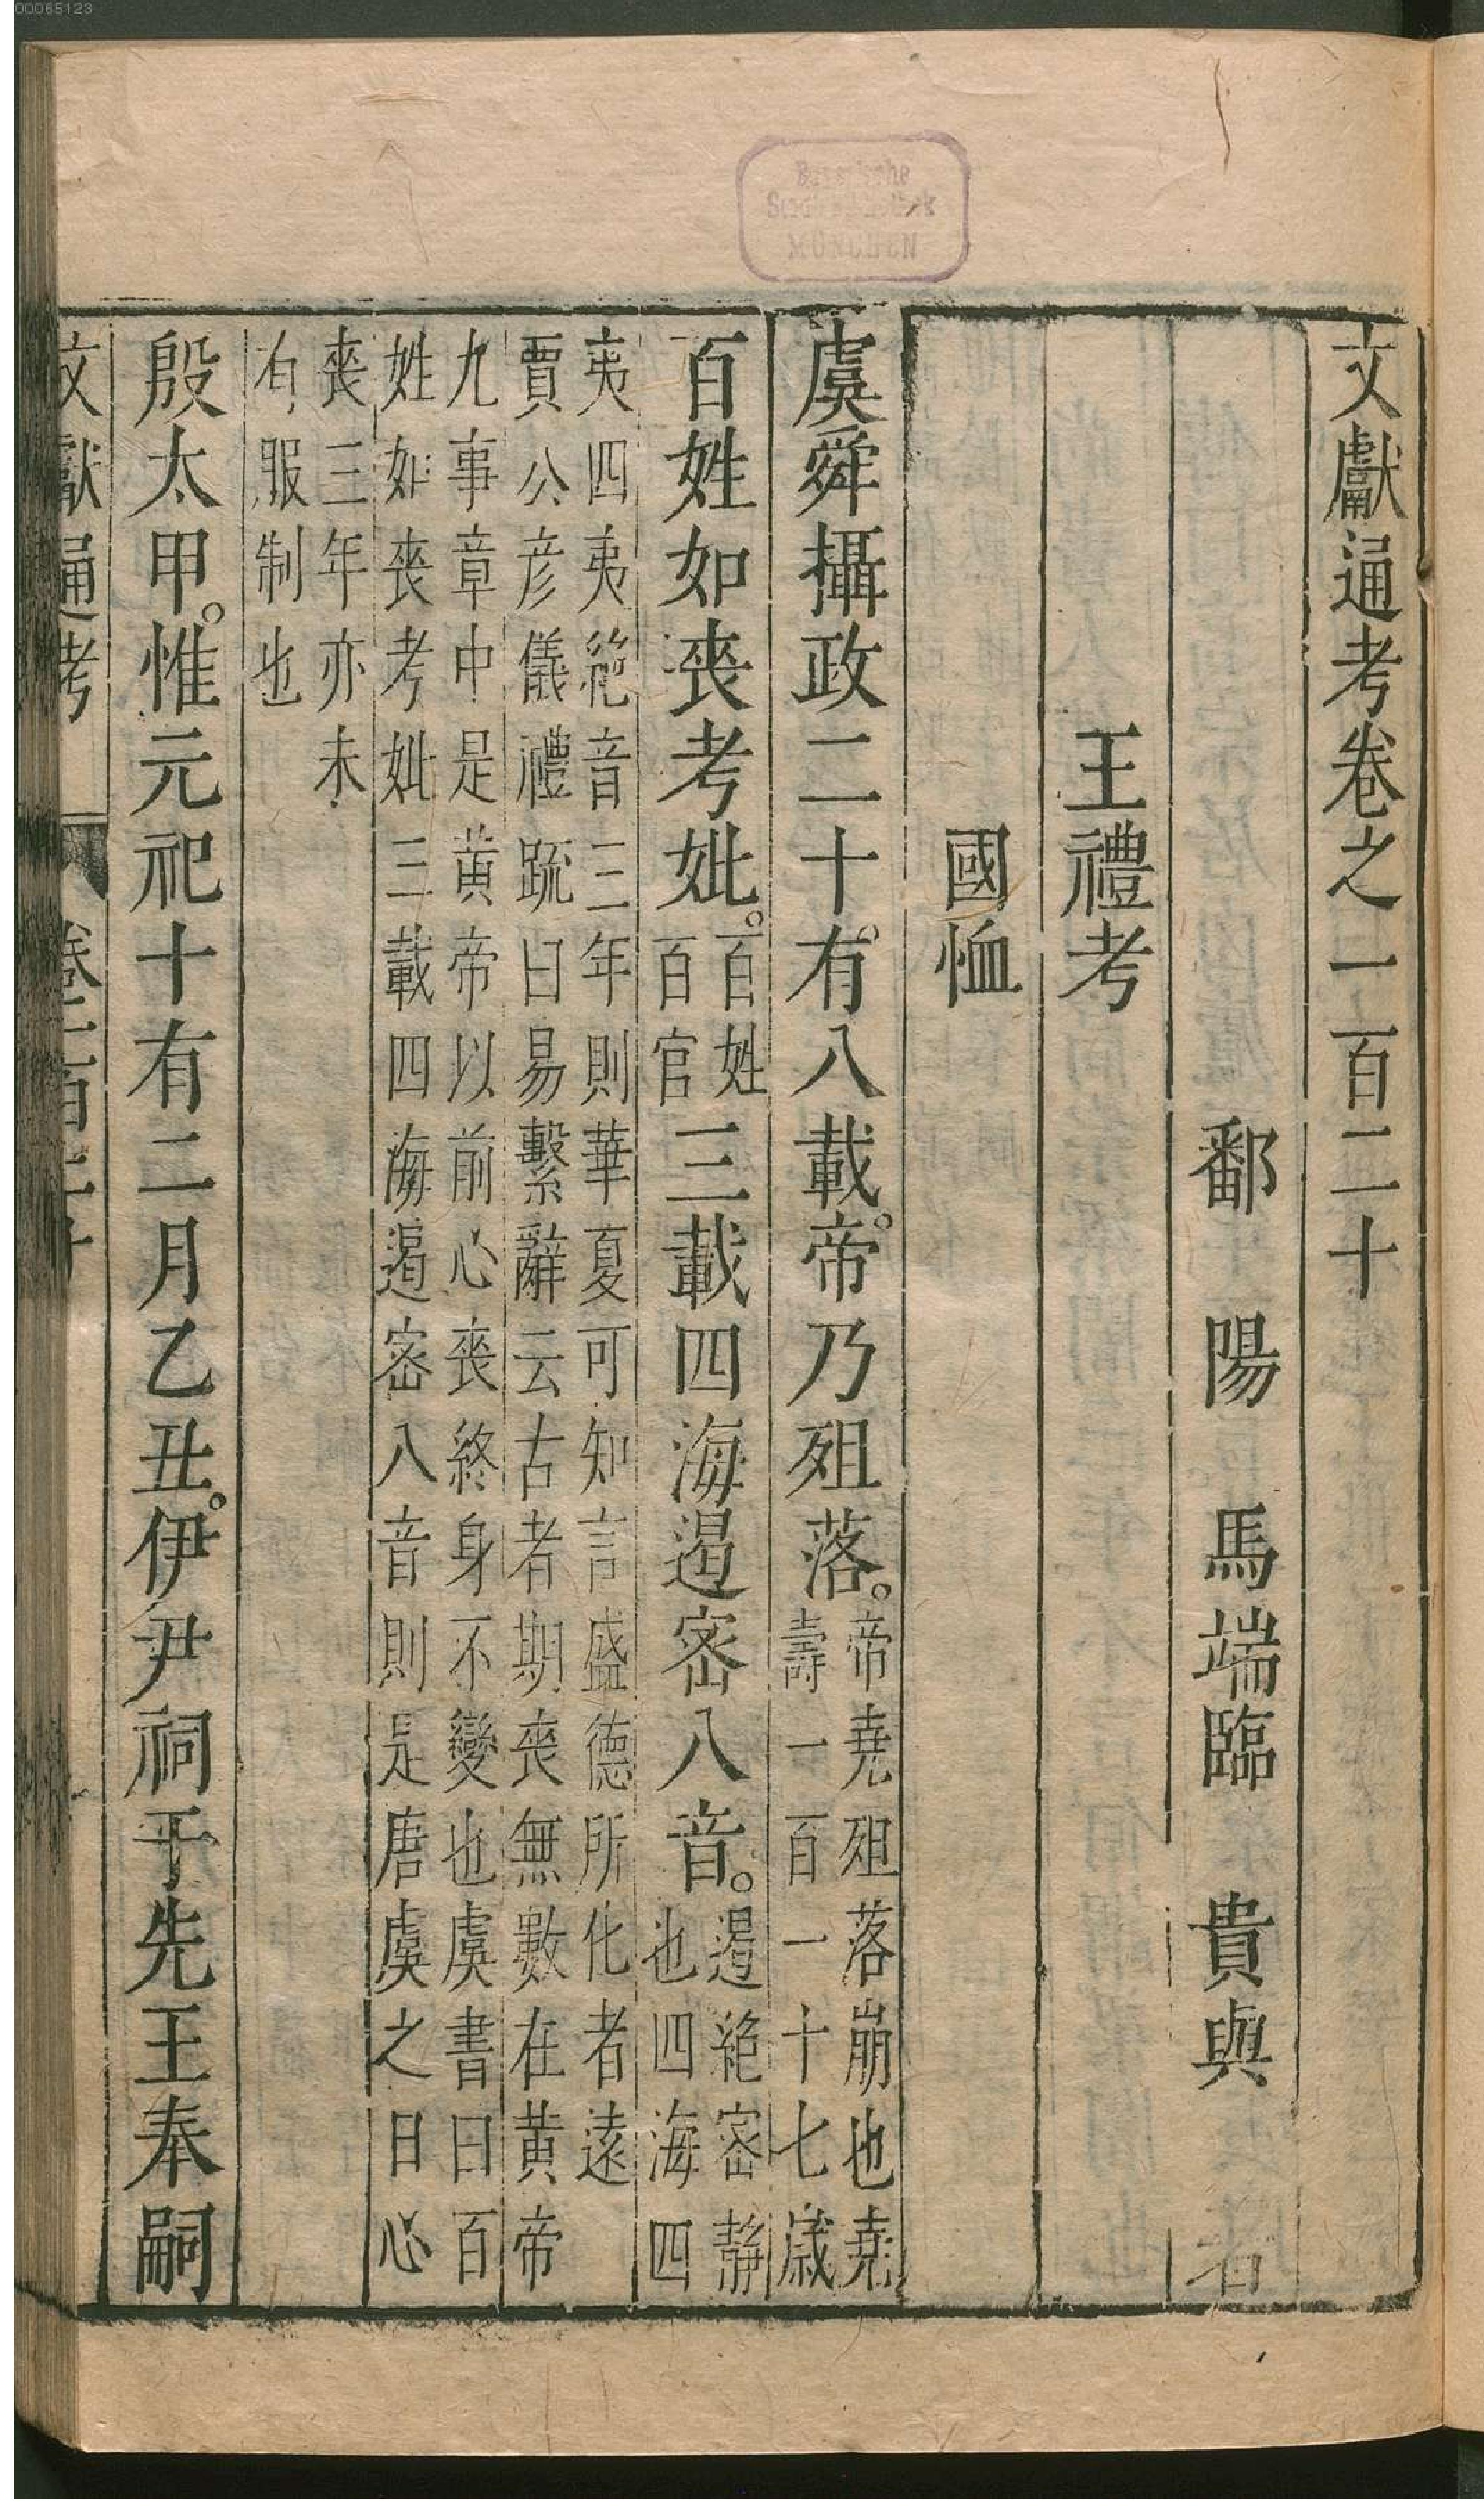 00065123
Bayerische
Staatsbibliothek
MÜNCHEN
文獻通考卷之一百二十
鄱陽馬端臨貴與著
王禮考
國恤
虞舜攝政二十。有八載。帝乃殂落。帝堯殂落崩也堯
壽一百一十七歲
百姓如喪考妣。百姓
百官三載四海遏密八音。遏絕密靜
也四海四
夷四夷絕音三年則華夏可知言盛德所化者遠
賈公彥儀禮疏曰易繫辭云古者期喪無數在黃帝
九事章中是黃帝以前心喪終身不變也虞書曰百
姓如喪考妣三載四海遏密八音則是唐虞之日心
喪三年亦未
有服制也
殷太甲。惟元祀十有二月乙丑。伊尹祠于先王奉嗣
文獻通考 卷一百二十